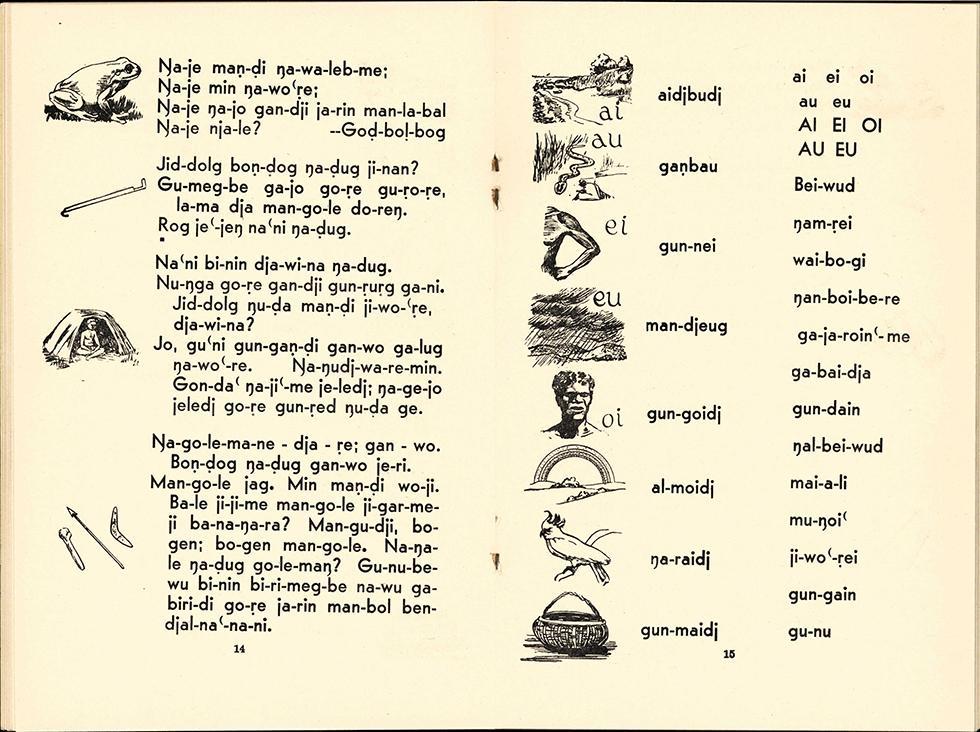 Ŋa-je maṇ-ḍi ŋa-wa-leb-me;
Ŋa-je min ŋa-woʿṛe;
Ŋa-je ŋa-jo gan-dji ja-rin man-la-bal
Ŋa-je nja-le? --Goḍ-boḷ-bog
Jid-dolg boṇ-ḍog ŋa-ḍug ji-nan?
Gu-meg-be ga-jo go-ṛe gu-ṛo-ṛe,
la-ma dja man-go-le do-reŋ.
Rog jeʿ-jeŋ naʿni ŋa-ḍug.
Naʿni bi-nin dja-wi-na ŋa-ḍug.
Nu-ŋga go-ṛe gan-dji gun-ṛuṛg ga-ni.
Jid-dolg ŋu-ḍa maṇ-ḍi ji-wo-ʿṛe,
dja-wi-na?
Jo, guʿni gun-gaṇ-ḍi gan-wo ga-lug
ŋa-woʿ-ṛe. Ŋa-ŋudj-wa-re-min.
Gon-daʿ ŋa-jiʿ-me je-ledj; ŋa-ge-jo
jeledj go-ṛe gun-ṛed ŋu-ḍa ge.
Ŋa-go-le-ma-ne - dja - ṛe; gan - wo.
Boṇ-ḍog ŋa-ḍug gan-wo je-ri.
Man-go-le jag. Min maṇ-ḍi wo-ji.
Ba-le ji-ji-me man-go-le ji-gar-me-
ji ba-na-ŋa-ra? Man-gu-dji, bo-
gen; bo-gen man-go-le. Na-ŋa-
le ŋa-ḍug go-le-maŋ? Gu-nu-be-
wu bi-nin bi-ri-meg-be na-wu ga-
biri-di go-ṛe ja-rin man-bol ben-
djal-naʿ-na-ni.
14
ai
aidjbudj
au
gaṇbau
ei
gun-nei
eu
man-djeug
oi
gun-goidj
al-moidj
ŋa-raidj
gun-maidj
ai ei oi
au eu
AI EI OI
AU EU
Bei-wud
ŋam-ṛei
wai-bo-gi
ŋan-boi-be-re
ga-ja-roinʿ-me
ga-bai-dja
gun-dain
ŋal-bei-wud
mai-a-li
mu-ŋoiʿ
ji-woʿ-ṛei
gun-gain
gu-nu
15